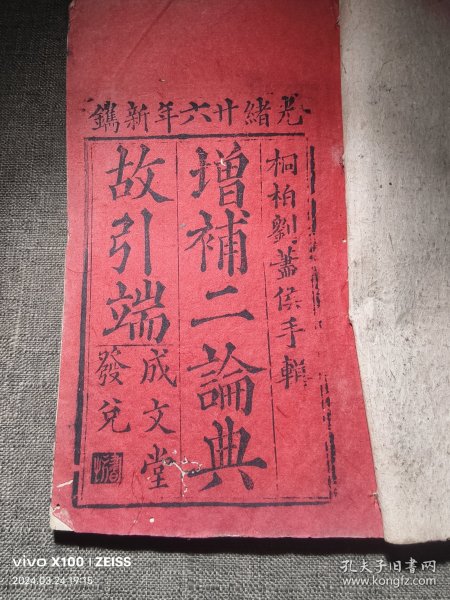 光緒廿六年新鐫
桐柏劉蓋侯手輯
增補二論典
故引端
成文堂
發兌
vivo X100 | ZEISS
2024.03.24 19:15
孔夫子旧书网
www.kongfz.com